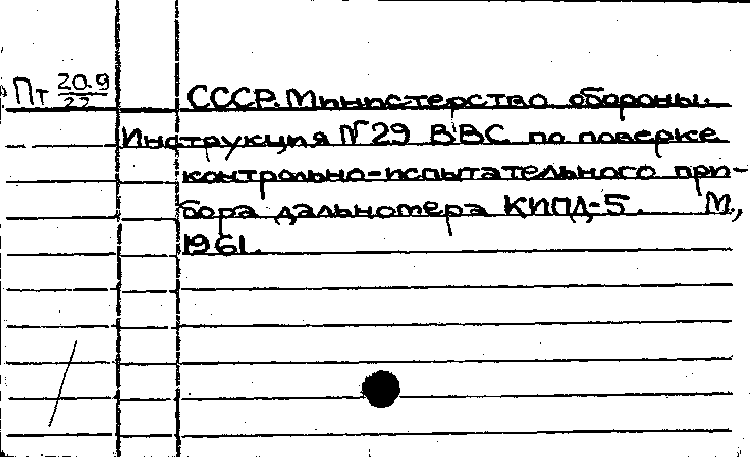 Пт 20.9/22 СССР. Министерство обороны.
Инструкция №29 ВВС по поверке
контрольно-испытательного при-
бора дальномера КИПД-5. М.,
1961.